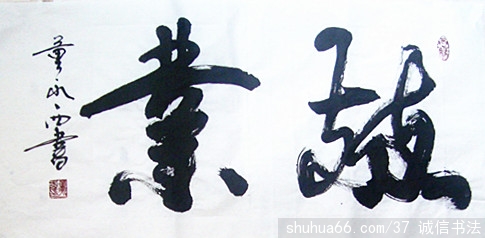 敬業
董永西書
shuhua66.com/37 诚信书法